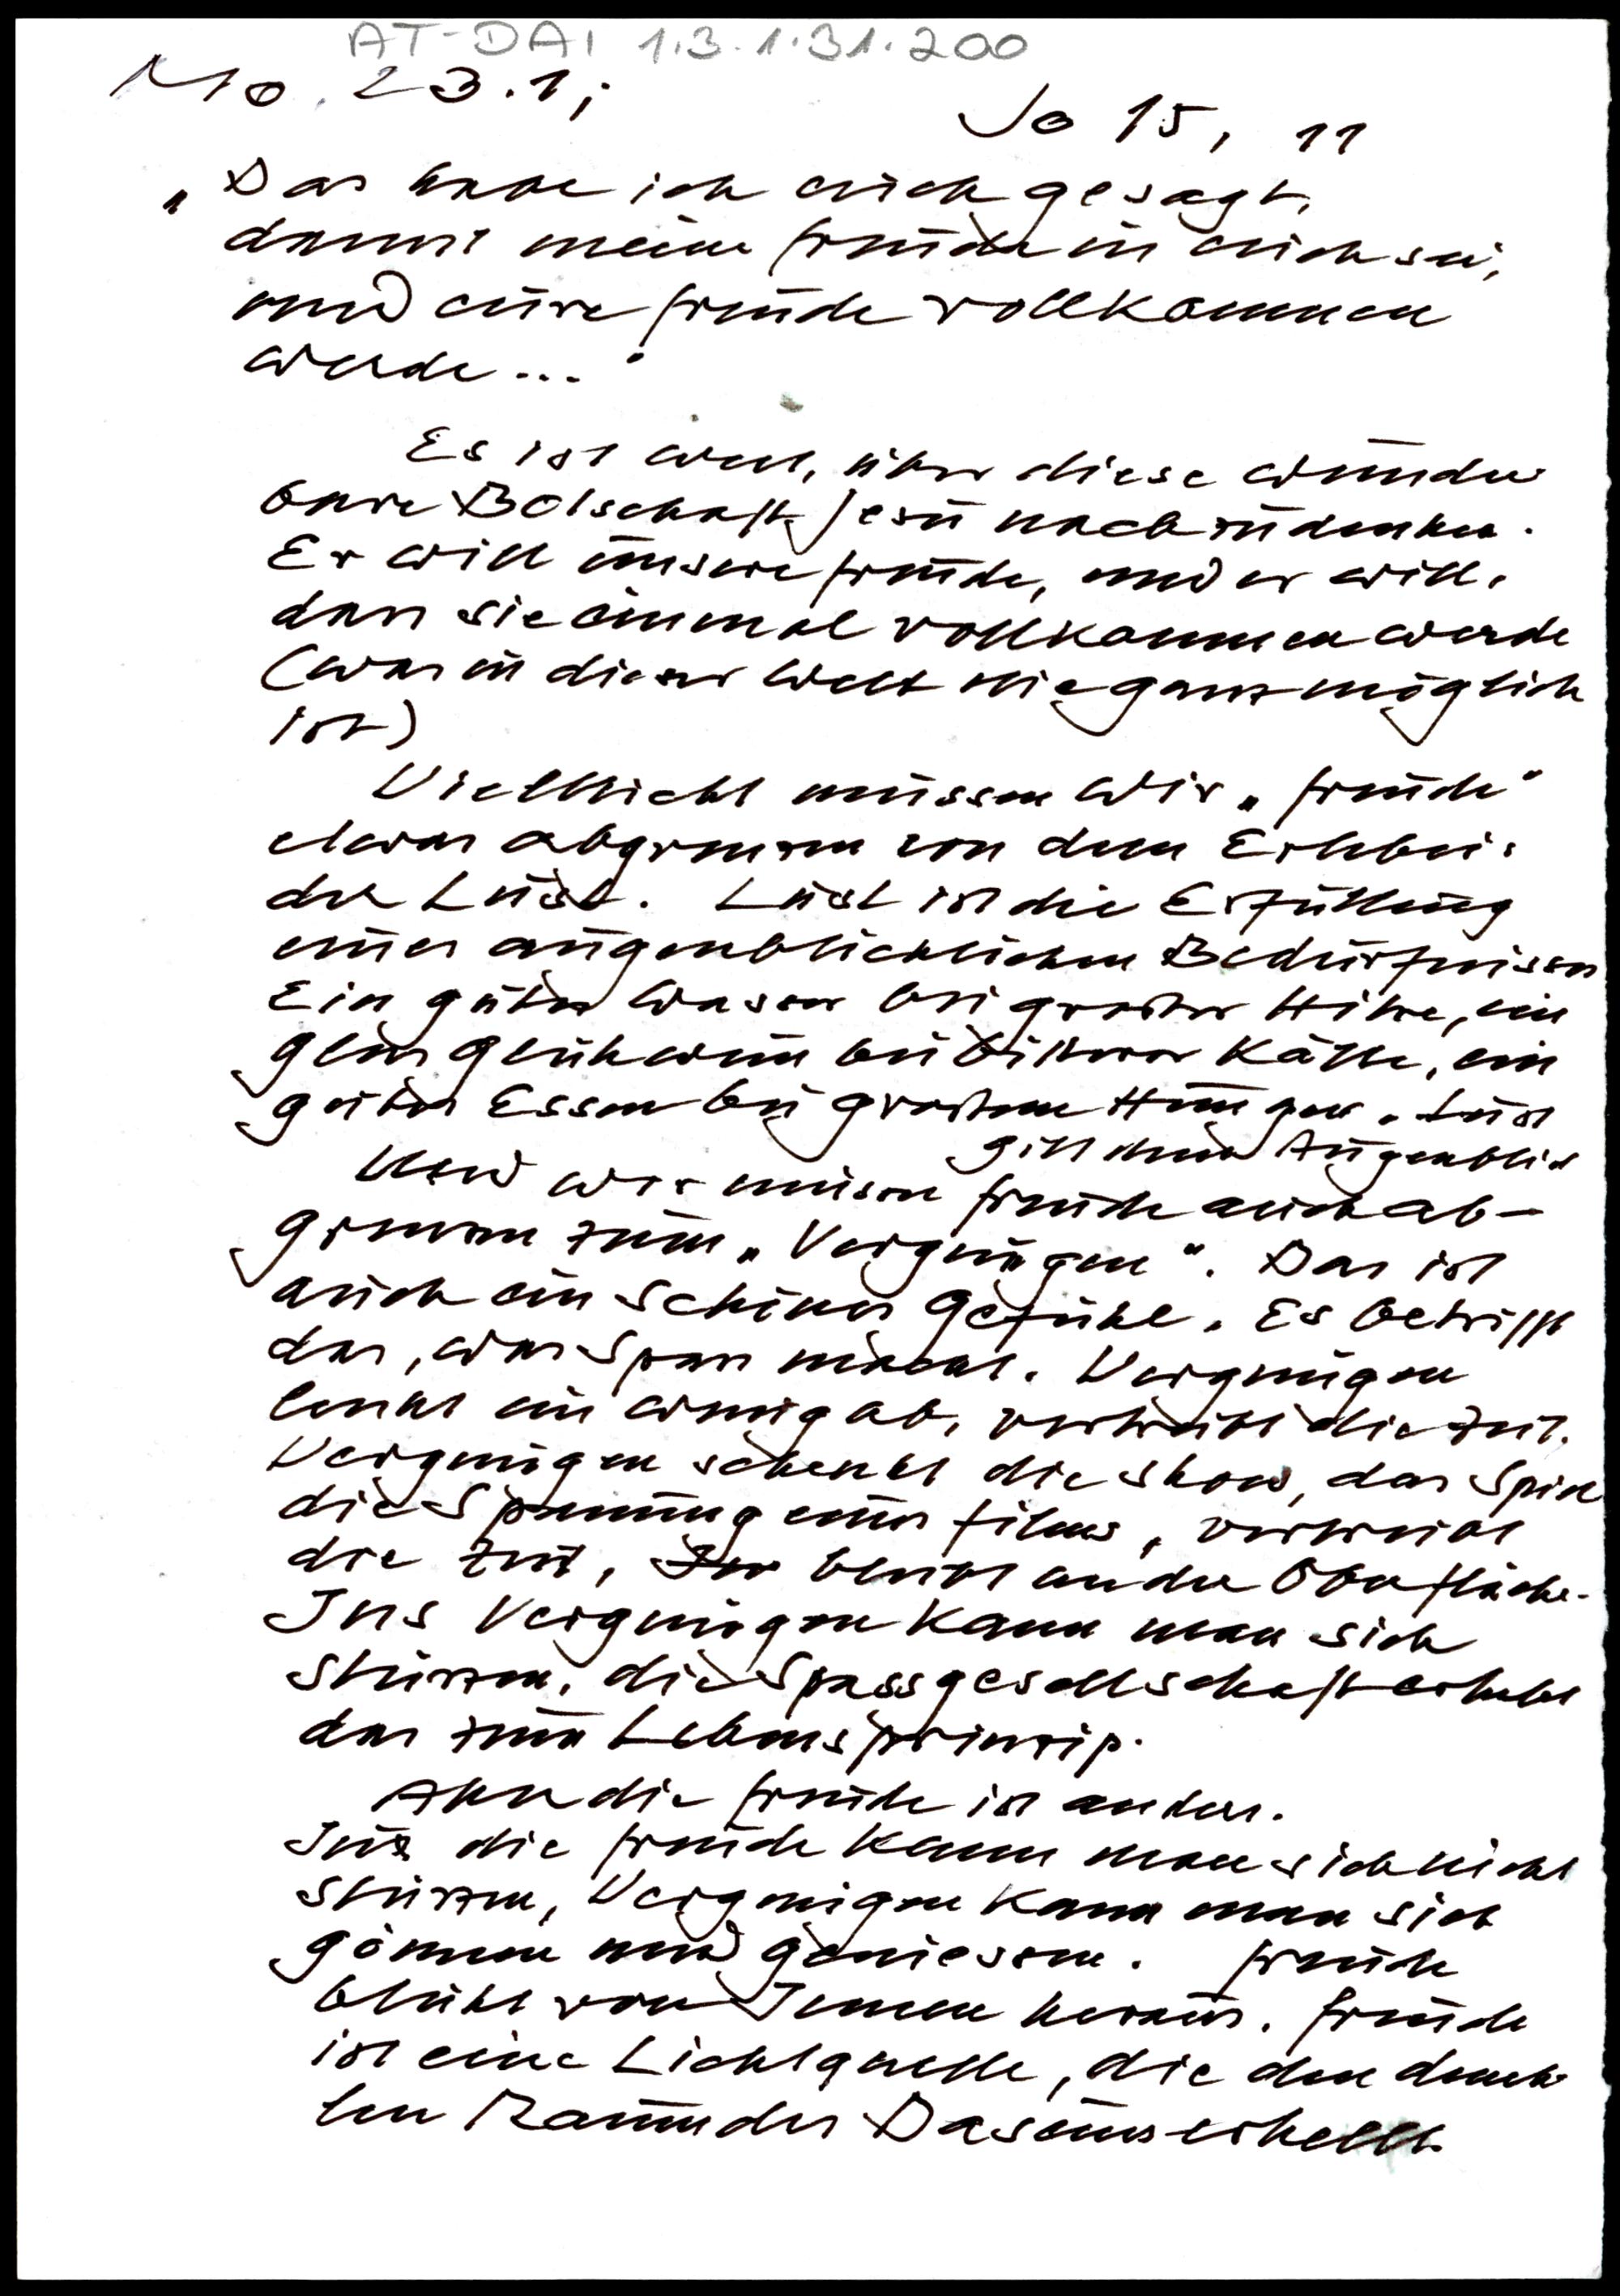 AT-DAI 1.3.1.31.200
Mo. 23.1;
Jo 15, 11
„Das habe ich euch gesagt,
damit meine Freude in euch sei,
und eure Freude vollkommen
werde..."
Es ist wert, über diese wunder
bare Botschaft Jesu nachzudenken.
Er will unsere Freude, und er will,
dass sie einmal vollkommen werde
(was in dieser Welt nie ganz möglich
ist)
Vielleicht müssen wir „Freude"
etwas abgrenzen von dem Erlebnis
der Lust. Lust ist die Erfüllung
eines augenblicklichen Bedürfnisses
Ein gutes Wasser bei grosser Hitze, ein
Glas Glühwein bei bitterer Kälte, ein
gutes Essen bei grossem Hunger. Lust
gilt dem Augenblick
Und wir müssen Freude auch ab-
grenzen zum „Vergnügen". Das ist
auch ein schönes Gefühl. Es betrifft
das, was Spass macht. Vergnügen
lenkt ein wenig ab, vertreibt die Zeit.
Vergnügen schenkt die Show, das Spiel
die Spannung eines Films, vertreibt
die Zeit, bleibt an der Oberfläche.
Ins Vergnügen kann man sich
stürzen, die Spassgesellschaft erhebt
das zum Lebensprinzip.
Aber die Freude ist anders.
In die Freude kann man sich nicht
stürzen, Vergnügen kann man sich
gönnen und geniessen. Freude
blüht von Innen heraus. Freude
ist eine Lichtquelle, die den dunk
len Raum des Daseins erhellt.